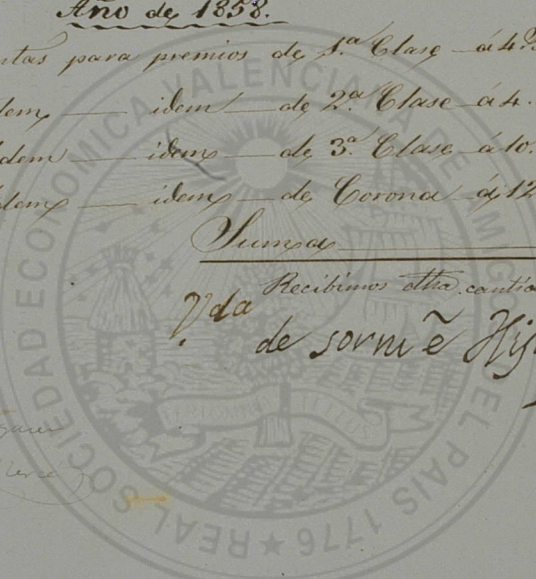 Año de 1858.
ntas para premios de 1.ª Clase á 4.
dem idem de 2.ª Clase á 4.
ídem idem de 3.ª Clase á 10.
idem idem de Corona á 12
Suma
Recibimos dha. cantid
V.da
de sormẽ Hij
REAL SOCIEDAD ECONOMICA VALENCIANA DE AMIGOS DEL PAIS 1776